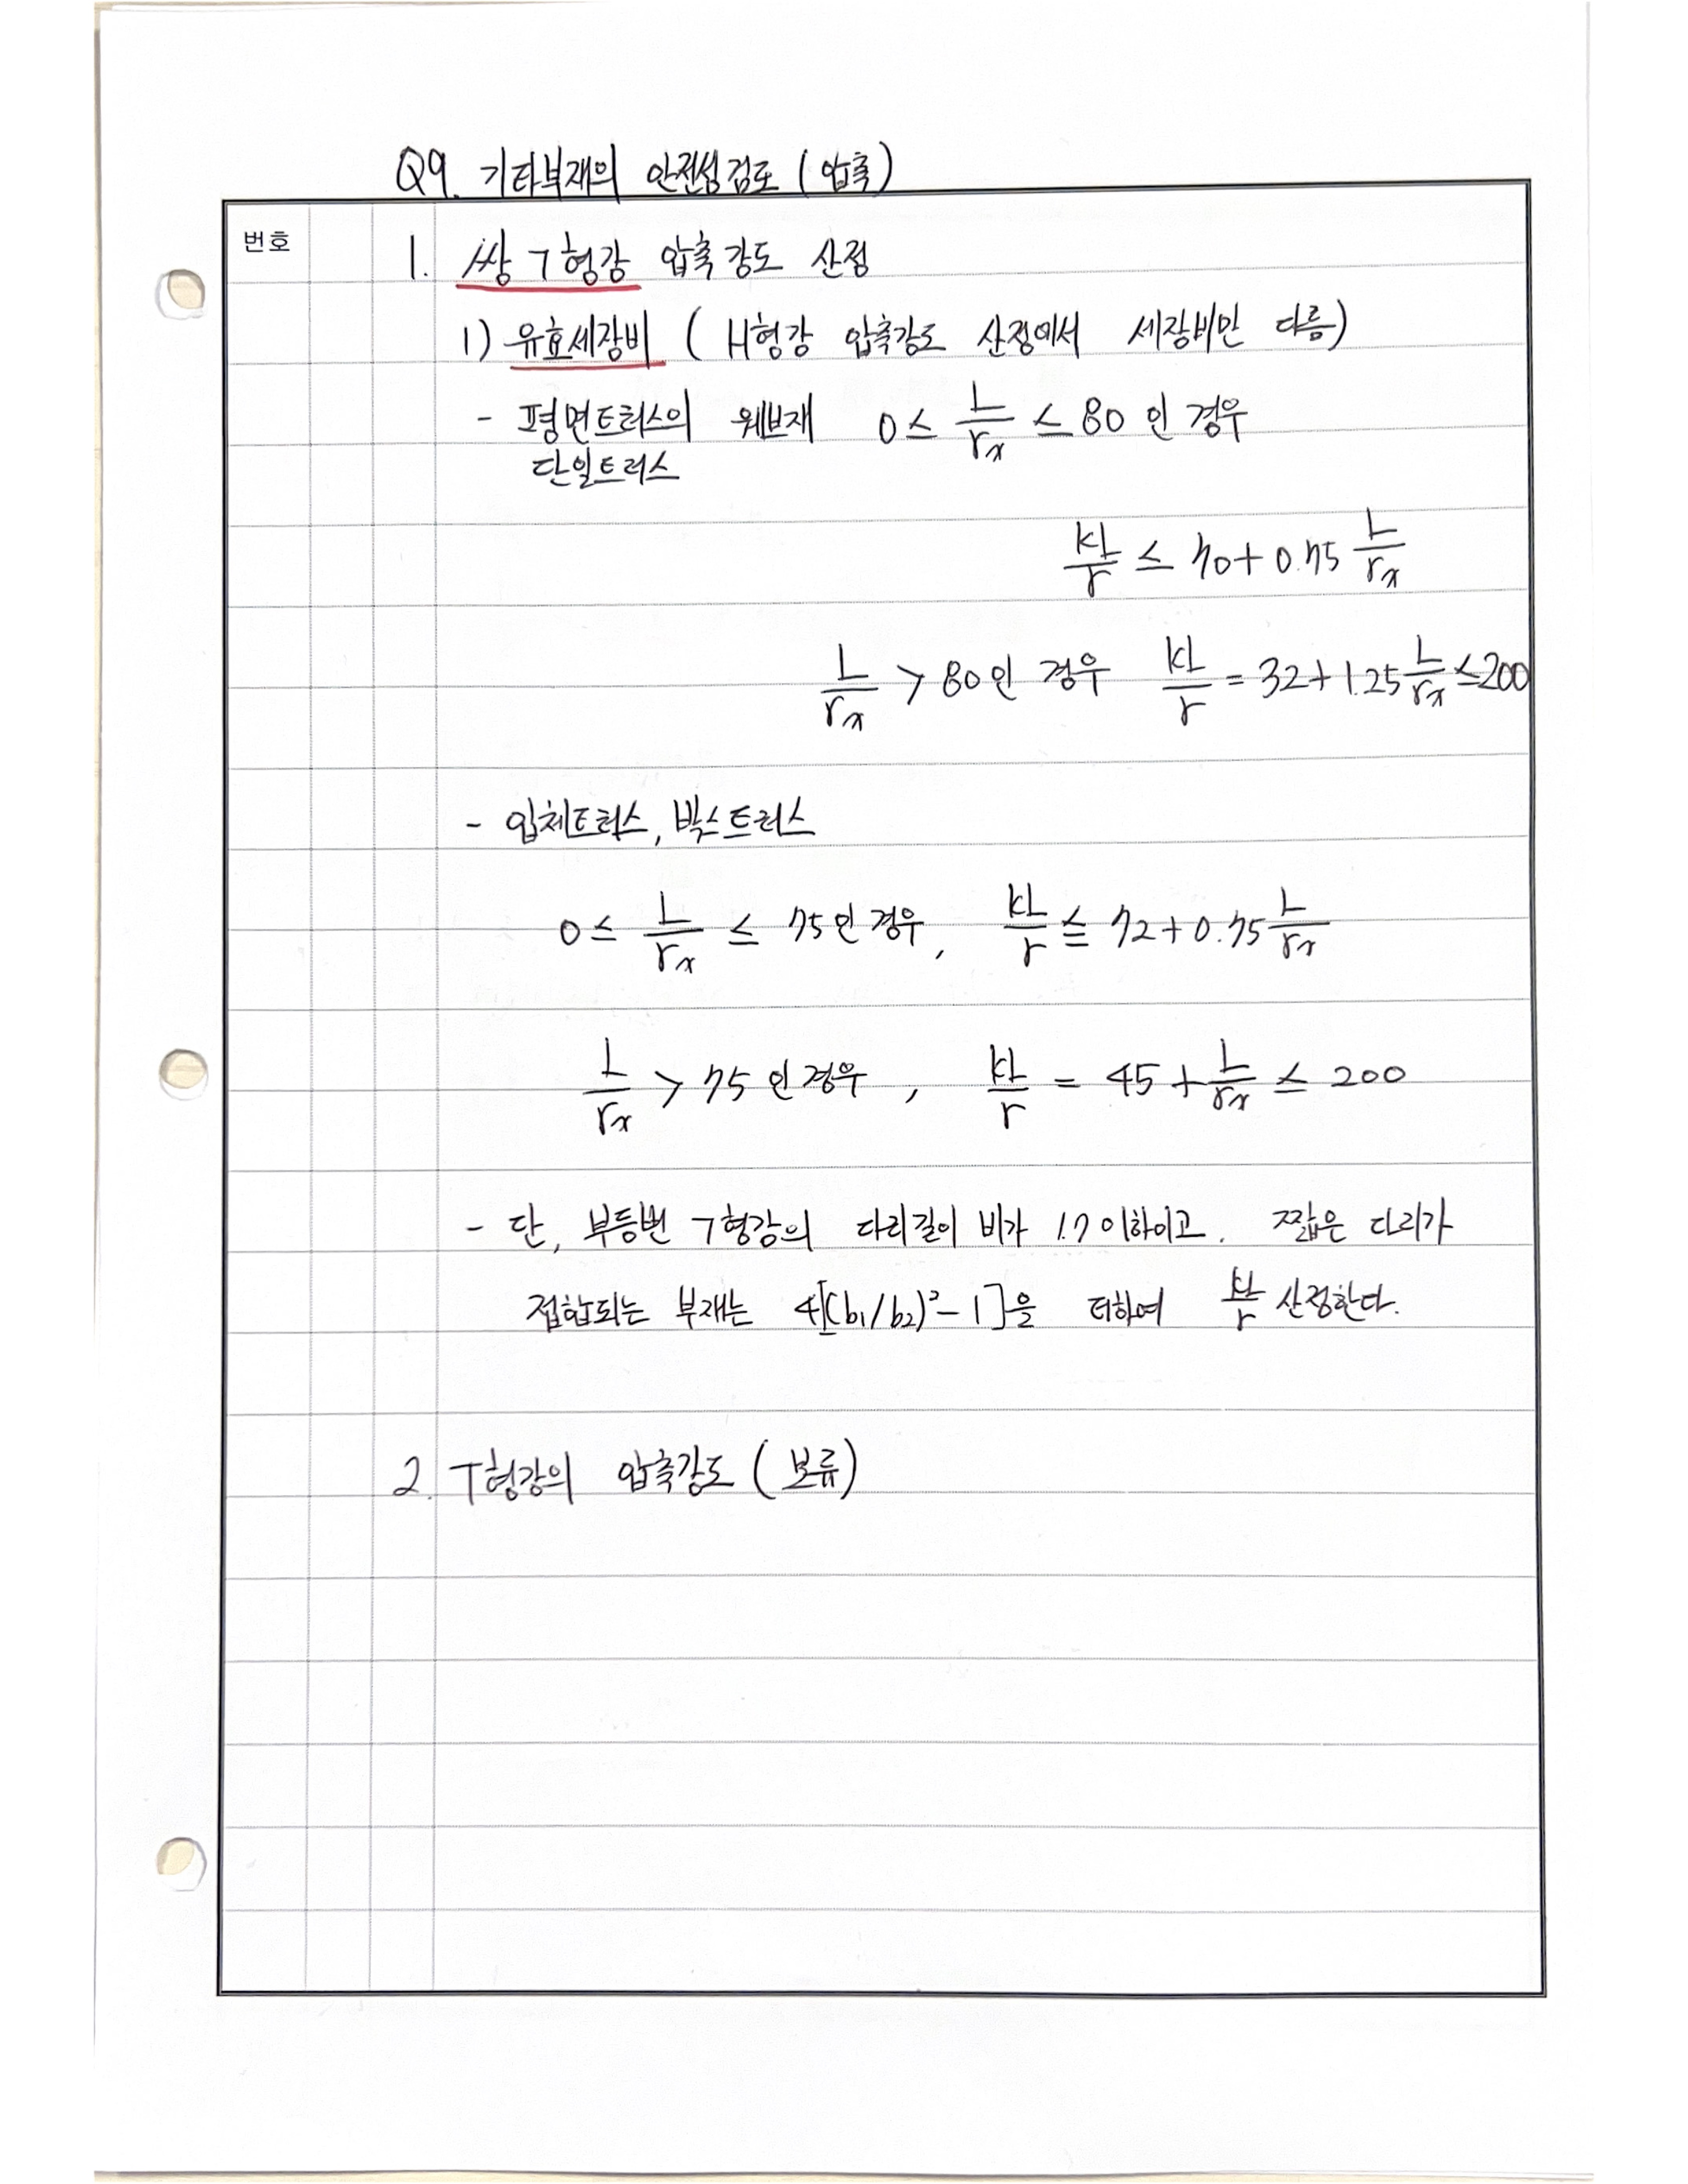 Q9. 기타부재의 안전성검토 (압축)
번호
1. 쌍ㄱ형강 압축강도 산정
1) 유효세장비 ( H형강 압축강도 산정에서 세장비만 다름)
- 평면트러스의 웨브재 0 ≤ L/rx ≤ 80 인 경우
단일트러스
KL/r ≤ 70 + 0.75 L/rx
L/rx > 80인 경우 KL/r = 32 + 1.25 L/rx ≤ 200
- 입체트러스, 박스트러스
0 ≤ L/rx ≤ 75인 경우, KL/r ≦ 72 + 0.75 L/rx
L/rx > 75 인 경우, KL/r = 45 + L/rx ≤ 200
- 단, 부등변 ㄱ형강의 다리길이 비가 1.7 이하이고. 짧은 다리가
접합되는 부재는 4[(b1/b2)²-1]을 더하여 KL/r 산정한다.
2. T형강의 압축강도 (보류)